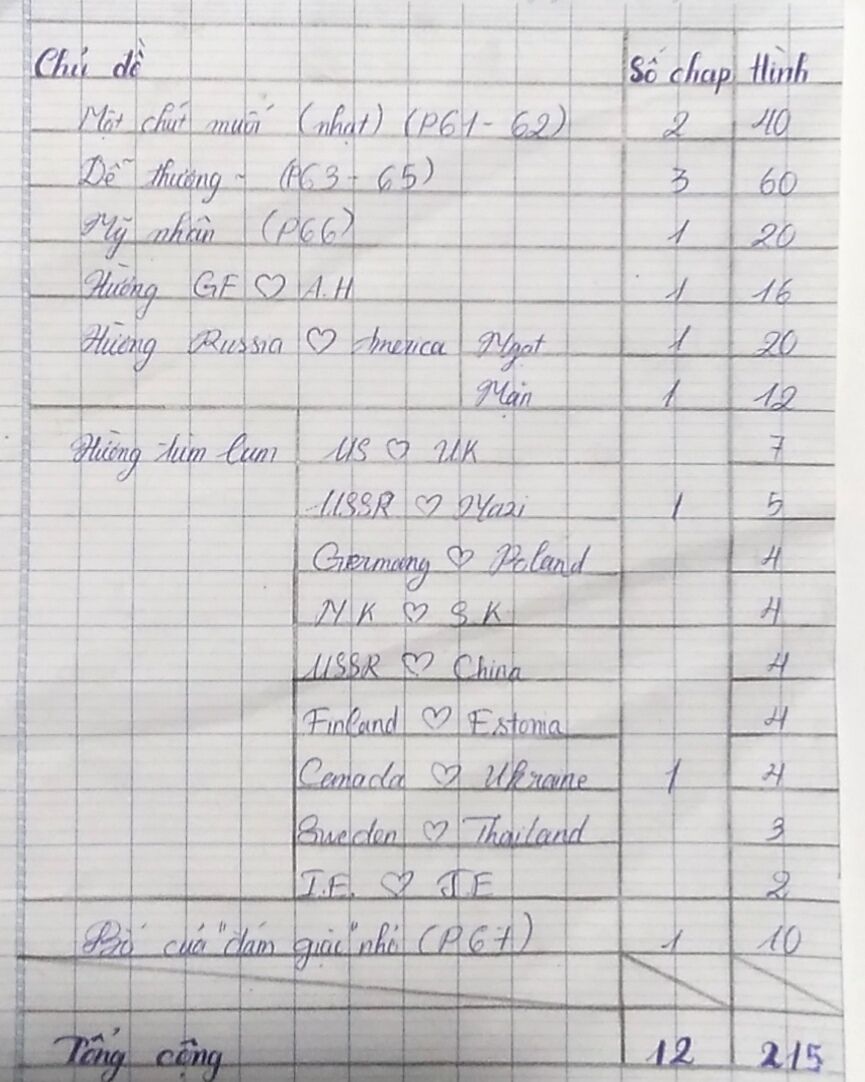 Chủ đề Số chap Hình
Một chút muối (nhạt) (P61 - 62) 2 40
Dễ thương ~ (P63 - 65) 3 60
Mỹ nhân (P66) 1 20
Hường GE ♡ A.H 1 16
Hường Russia ♡ America Ngọt 1 20
Mặn 1 12
Hường tùm lum US ♡ UK 7
USSR ♡ Nazi 1 5
Germany ♡ Poland 4
NK ♡ SK 4
USSR ♡ China 4
Finland ♡ Estonia 4
Canada ♡ Ukraine 1 4
Sweden ♡ Thailand 3
I.E. ♡ J.E 2
Bố của "đám giặc" nhỏ (P67) 1 10
Tổng cộng 12 215